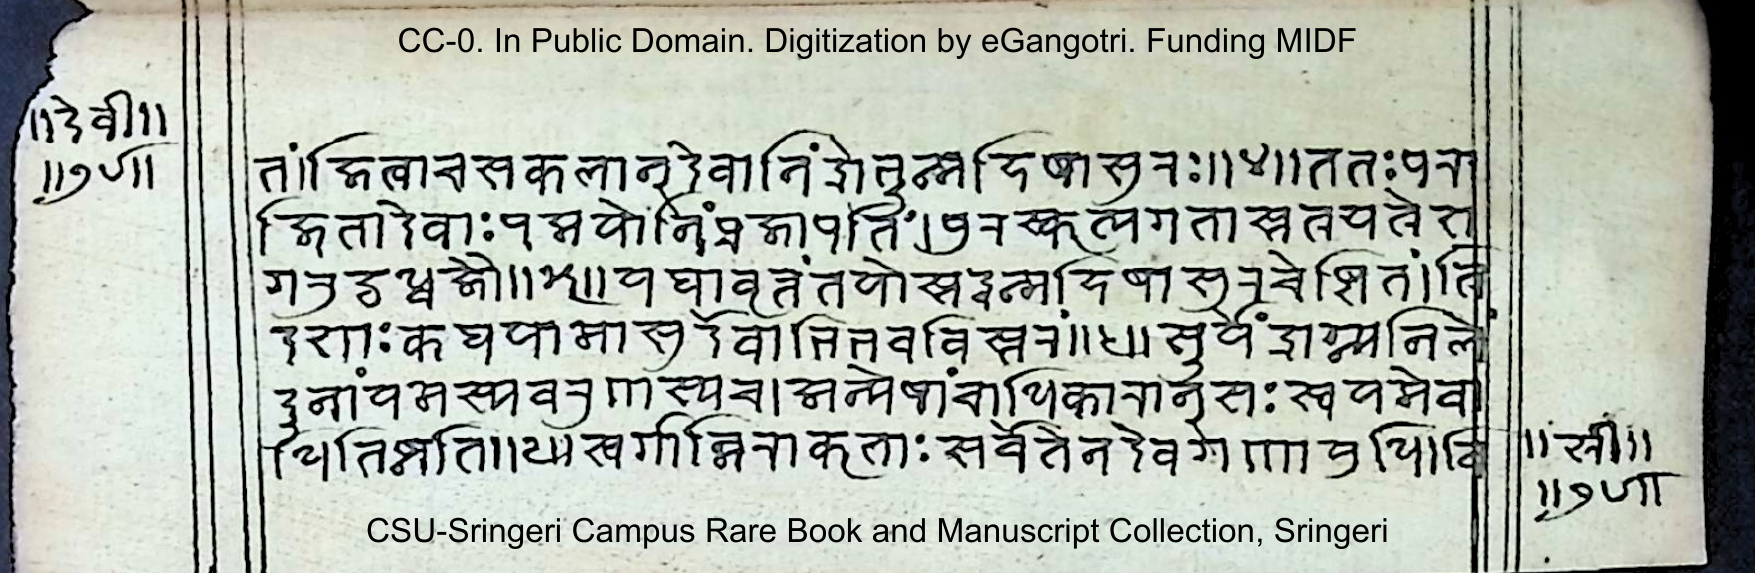 CC-0. In Public Domain. Digitization by eGangotri. Funding MIDF
॥देवी॥
॥१५॥
तं।जित्वाचसकलान्देवानिंद्रोभून्महिषासुरः॥४॥ततःपरा
जितादेवाःपद्मयोनिंप्रजापतिं।पुरस्कृत्यगतास्तत्रयत्रेश
गरुडध्वजौ॥५॥यथावृत्तंतयोस्तद्वन्महिषासुरचेष्टितं।त्रि
दशाःकथयामासुर्देवाभिभवविस्तरं॥६॥सूर्येंद्राग्न्यनिलें
दुनांयमस्यवरुणस्यच।अन्येषांचाधिकारान्सःस्वयमेवा
धितिष्ठति॥७॥स्वर्गान्निराकृताःसर्वेतेनदेवगणाभुवि।वि
॥स्री॥
॥१५॥
CSU-Sringeri Campus Rare Book and Manuscript Collection, Sringeri